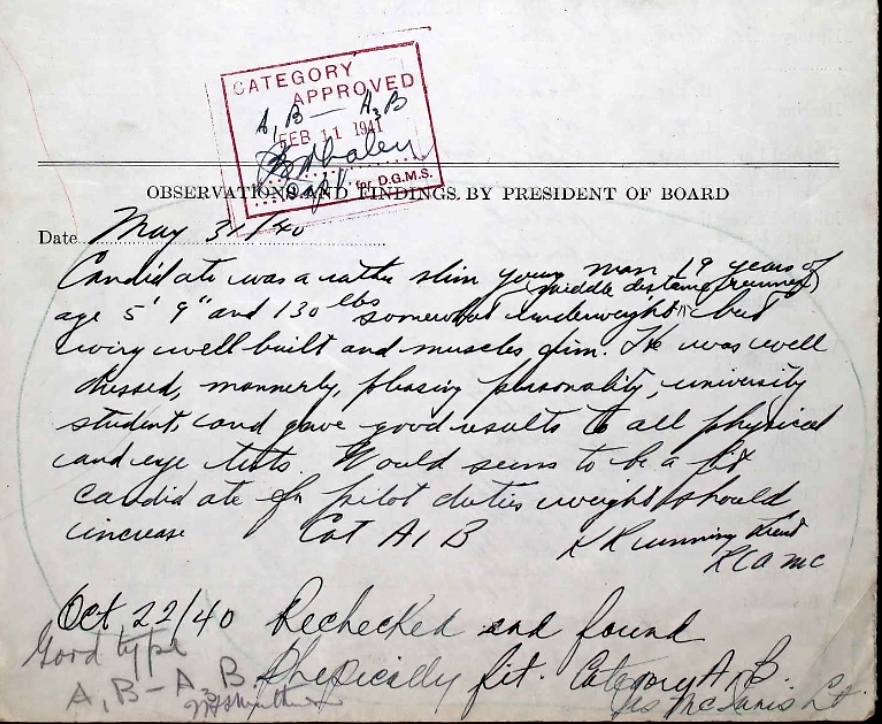 CATEGORY
APPROVED
A, B — A3B
FEB 11 1941
Capt. for D.G.M.S.
OBSERVATIONS AND FINDINGS BY PRESIDENT OF BOARD
Date May 31/40
Candidate was a rather slim young man 19 years of
(middle distance runner)
age 5' 9" and 130 lbs somewhat underweight but
wiry well built and muscles firm. He was well
dressed, mannerly, pleasing personality, university
student, and gave good results to all physical
and eye tests. Would seems to be a fit
candidate for pilot duties weight should
increase Cat A1B Running Lieut
RCAMC
Oct 22/40 Rechecked and found
Good type
physically fit. Category A1B.
A1B – A3B
Lt.